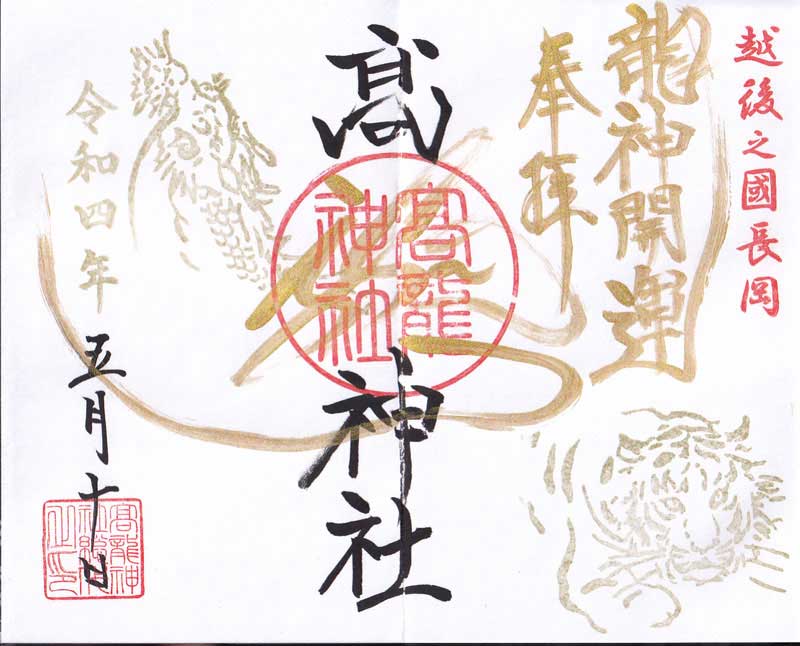 越後之國長岡
龍神開運
奉拝
髙龍神社
髙龍神社
令和四年
五月十日